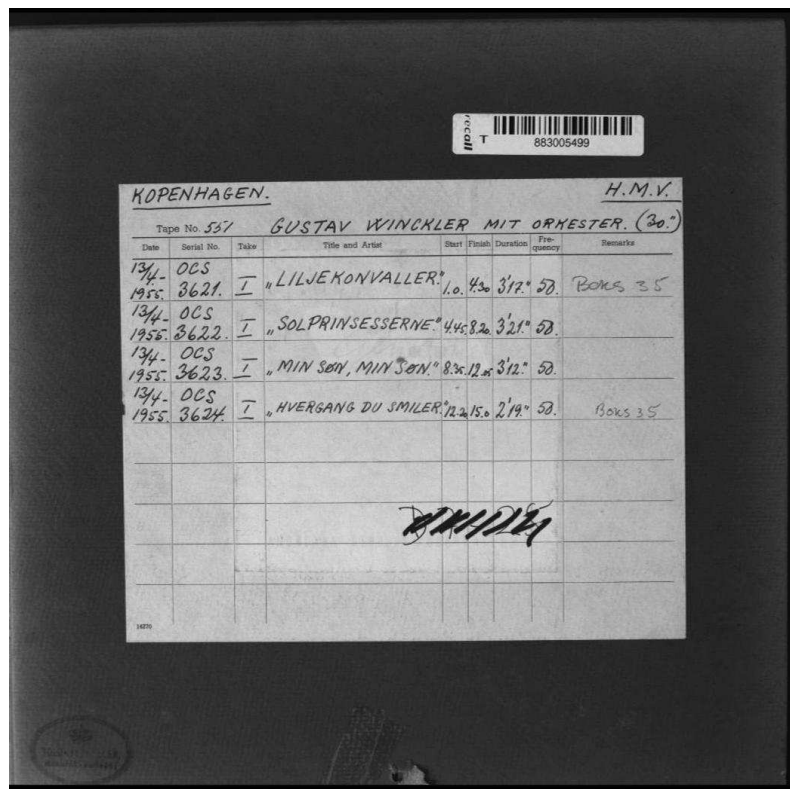 recall
T
883005499
KOPENHAGEN. H.M.V.
Tape No. 551 GUSTAV WINCKLER MIT ORKESTER. (30.")
Date Serial No. Take Title and Artist Start Finish Duration Fre-quency Remarks
13/4- 1955. OCS 3621. I "LILJEKONVALLER." 1.0. 4.30 3'17." 50. Boks 35
13/4- 1955. OCS 3622. I "SOLPRINSESSERNE." 4.45. 8.20. 3'21." 50.
13/4- 1955. OCS 3623. I "MIN SØN, MIN SØN." 8.35. 12.05 3'12." 50.
13/4- 1955. OCS 3624. I "HVERGANG DU SMILER." 12.20 15.0 2'19." 50. Boks 35
14270